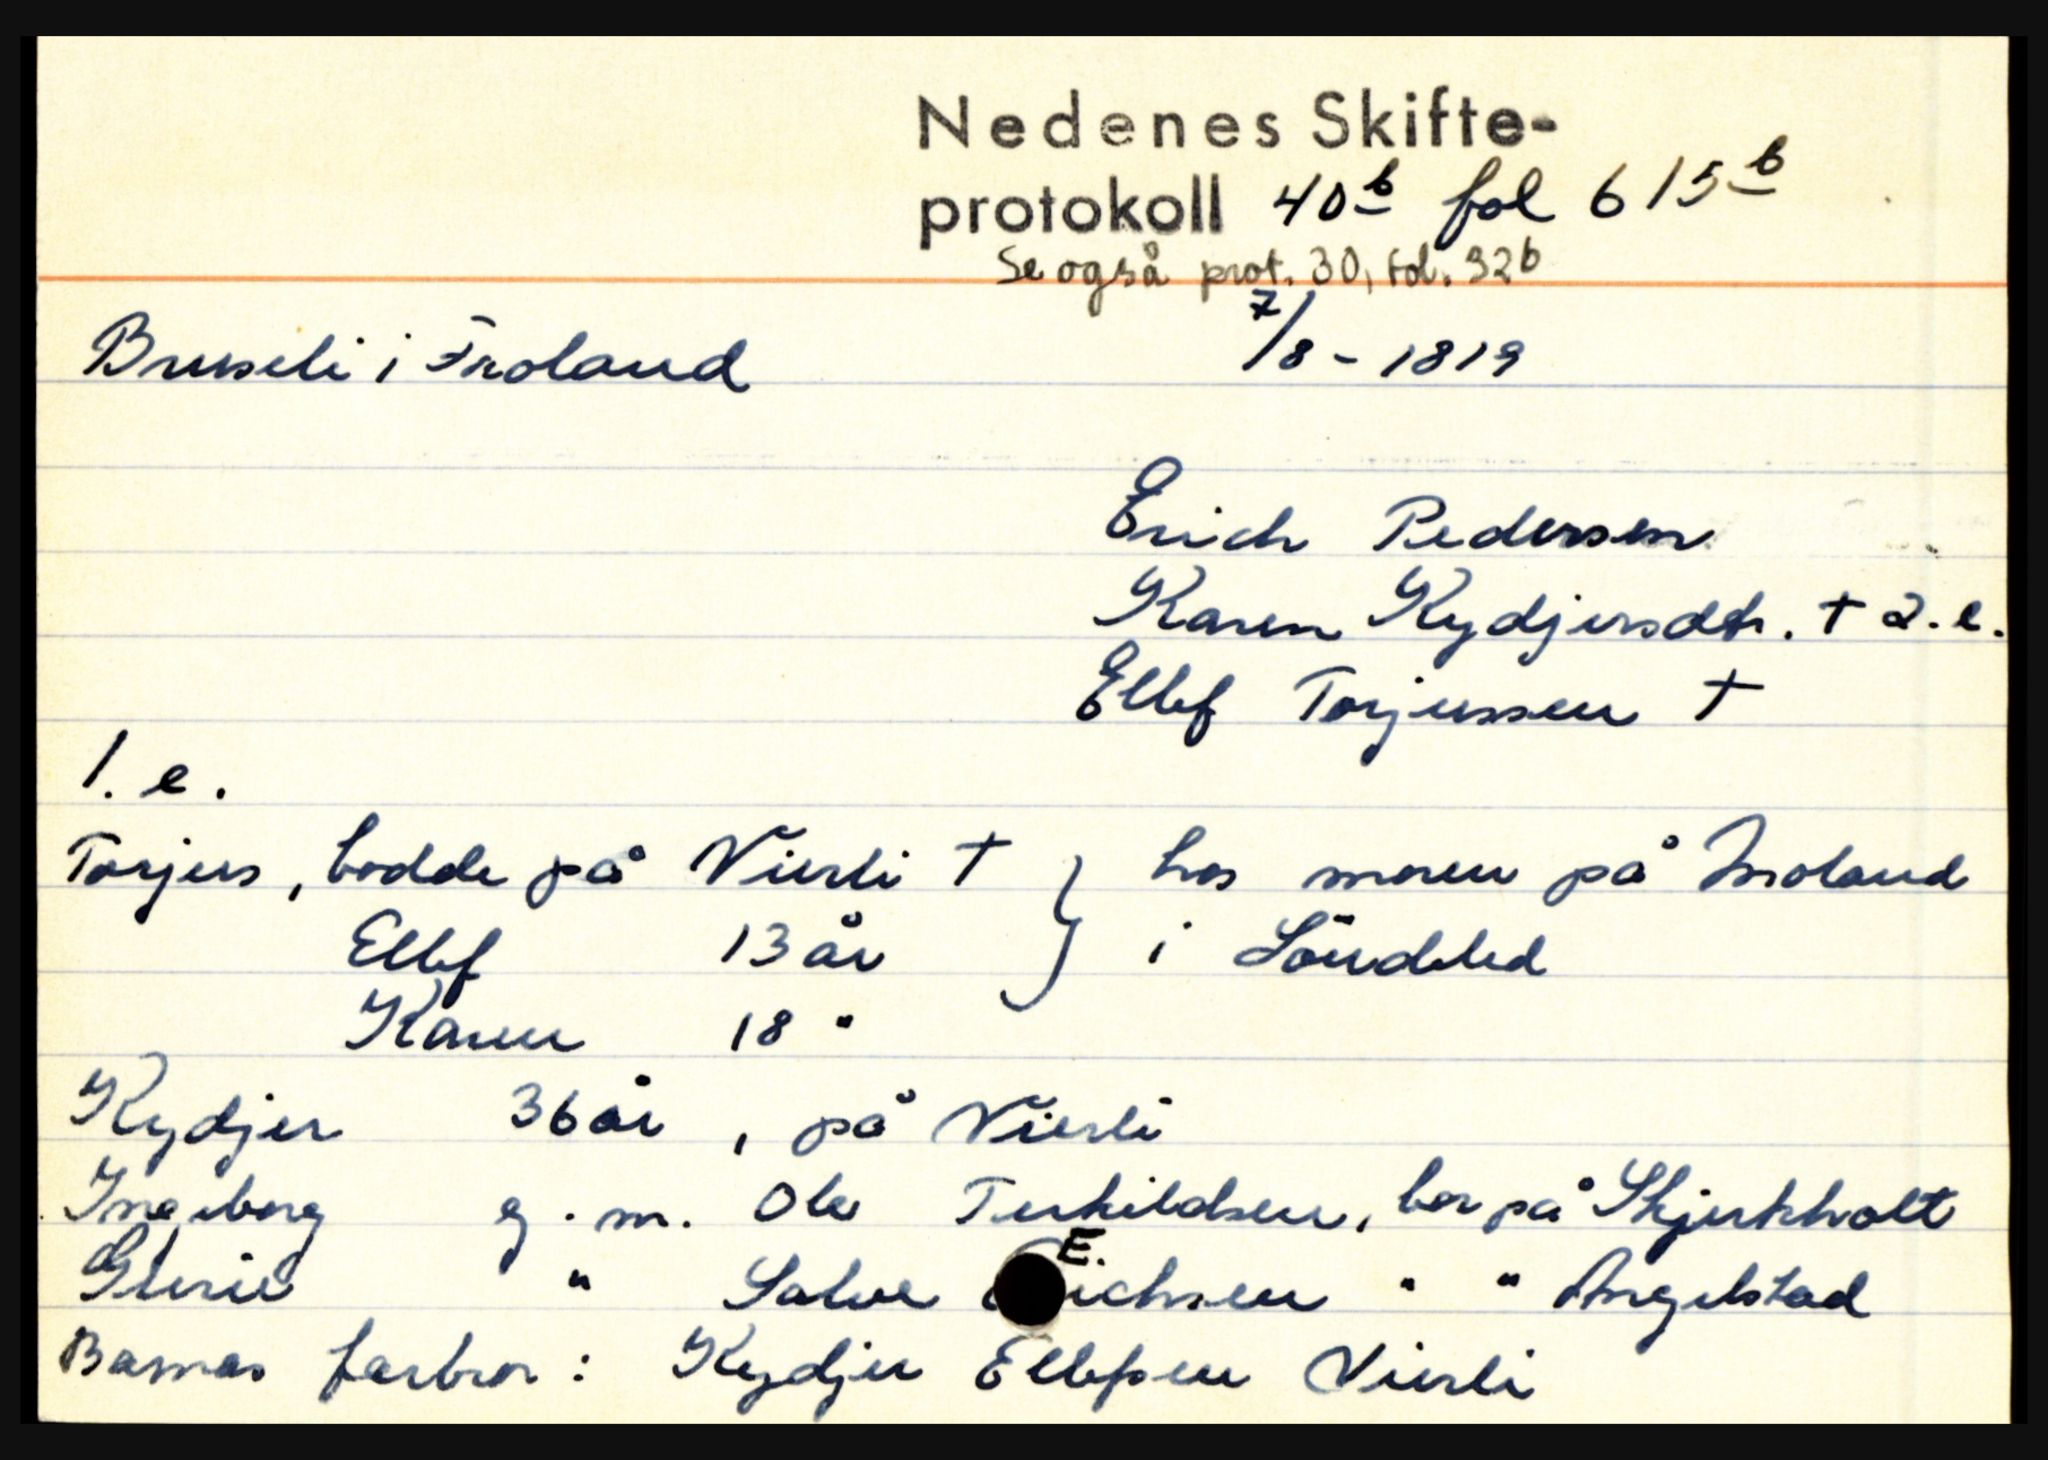 Nedenes Skifte-
protokoll 40b fol 615b
Se også prot. 30, fol. 92b
Bruseli i Froland 7/8 - 1819
Erich Pedersen
Karen Kydjersdtr. † 2. e.
Ellef Torjussen †
1. e.
Torjus, bodde på Vierli † } hos moren på Moland
Ellef 13 år i Söndeled
Karen 18 "
Kydjer 36 år, på Vierli
Ingeborg g. m. Ole Terkildsen, bor på Skjerkholt
Gurie " Salve E. ichsen " " Angelstad
Barnas farbror: Kydjer Ellefsen Vierli